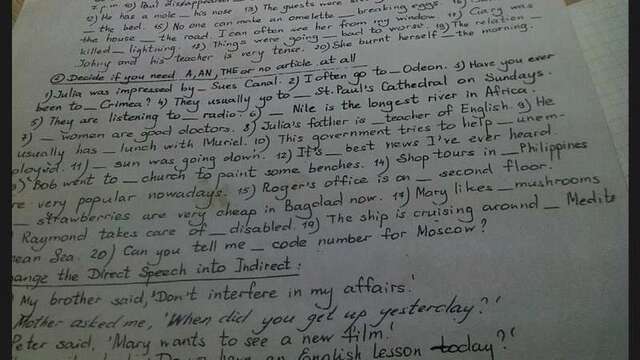 10) But disappeared
12) He has a mole _ his nose 13) The guests were
_ the bed. 15) No one can make an omelette _ breaking eggs.
the house _ the road. I can often see her from my window. Gary was
killed _ lightning. 18) Things were going _ bad to worse. 19) The relation _
Johny and his teacher is very tense. 20) She burnt herself _ the morning.
② Decide if you need A, AN, THE or no article at all
1) Julia was impressed by _ Sues Canal. 2) I often go to _ Odeon. 3) Have you ever
been to _ Crimea? 4) They usually go to _ St. Paul's Cathedral on Sundays.
5) They are listening to _ radio. 6) _ Nile is the longest river in Africa.
7) _ women are good doctors. 8) Julia's father is _ teacher of English. 9) He
usually has _ lunch with Muriel. 10) This government tries to help _ unem-
ployed. 11) _ sun was going down. 12) It's _ best news I've ever heard.
Bob went to _ church to paint some benches. 14) Shop tours in _ Philippines
very popular nowadays. 15) Roger's office is on _ second floor.
_ strawberries are very cheap in Bagdad now. 17) Mary likes _ mushrooms
Raymond takes care of _ disabled. 19) The ship is cruising around _ Medite
nean Sea. 20) Can you tell me _ code number for Moscow?
ange the Direct Speech into Indirect:
My brother said, 'Don't interfere in my affairs.'
Mother asked me, 'When did you get up yesterday?'
Peter said, 'Mary wants to see a new film.'
have an English lesson today?'